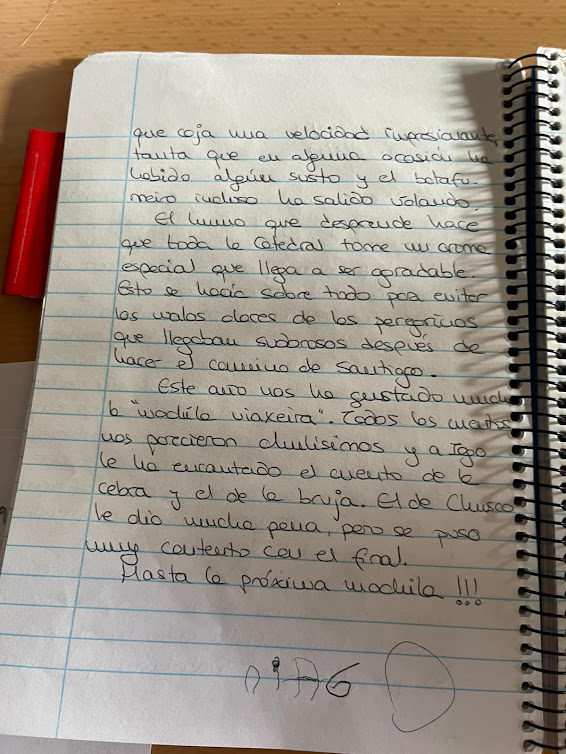 que coja una velocidad impresionante,
tanta que en alguna ocasión ha
habido algún susto y el botafu-
meiro incluso ha salido volando.
El humo que desprende hace
que toda la Catedral tome un aroma
especial que llega a ser agradable.
Esto se hacía sobre todo para evitar
los malos olores de los peregrinos
que llegaban sudorosos después de
hacer el camino de Santiago.
Este año nos ha gustado mucho
la "mochila viaxeira". Todos los cuentos
nos parecieron chulísimos y a Iago
le ha encantado el cuento de la
cebra y el de la bruja. El de Chusco
le dio mucha pena, pero se puso
muy contento con el final.
Hasta la próxima mochila !!!